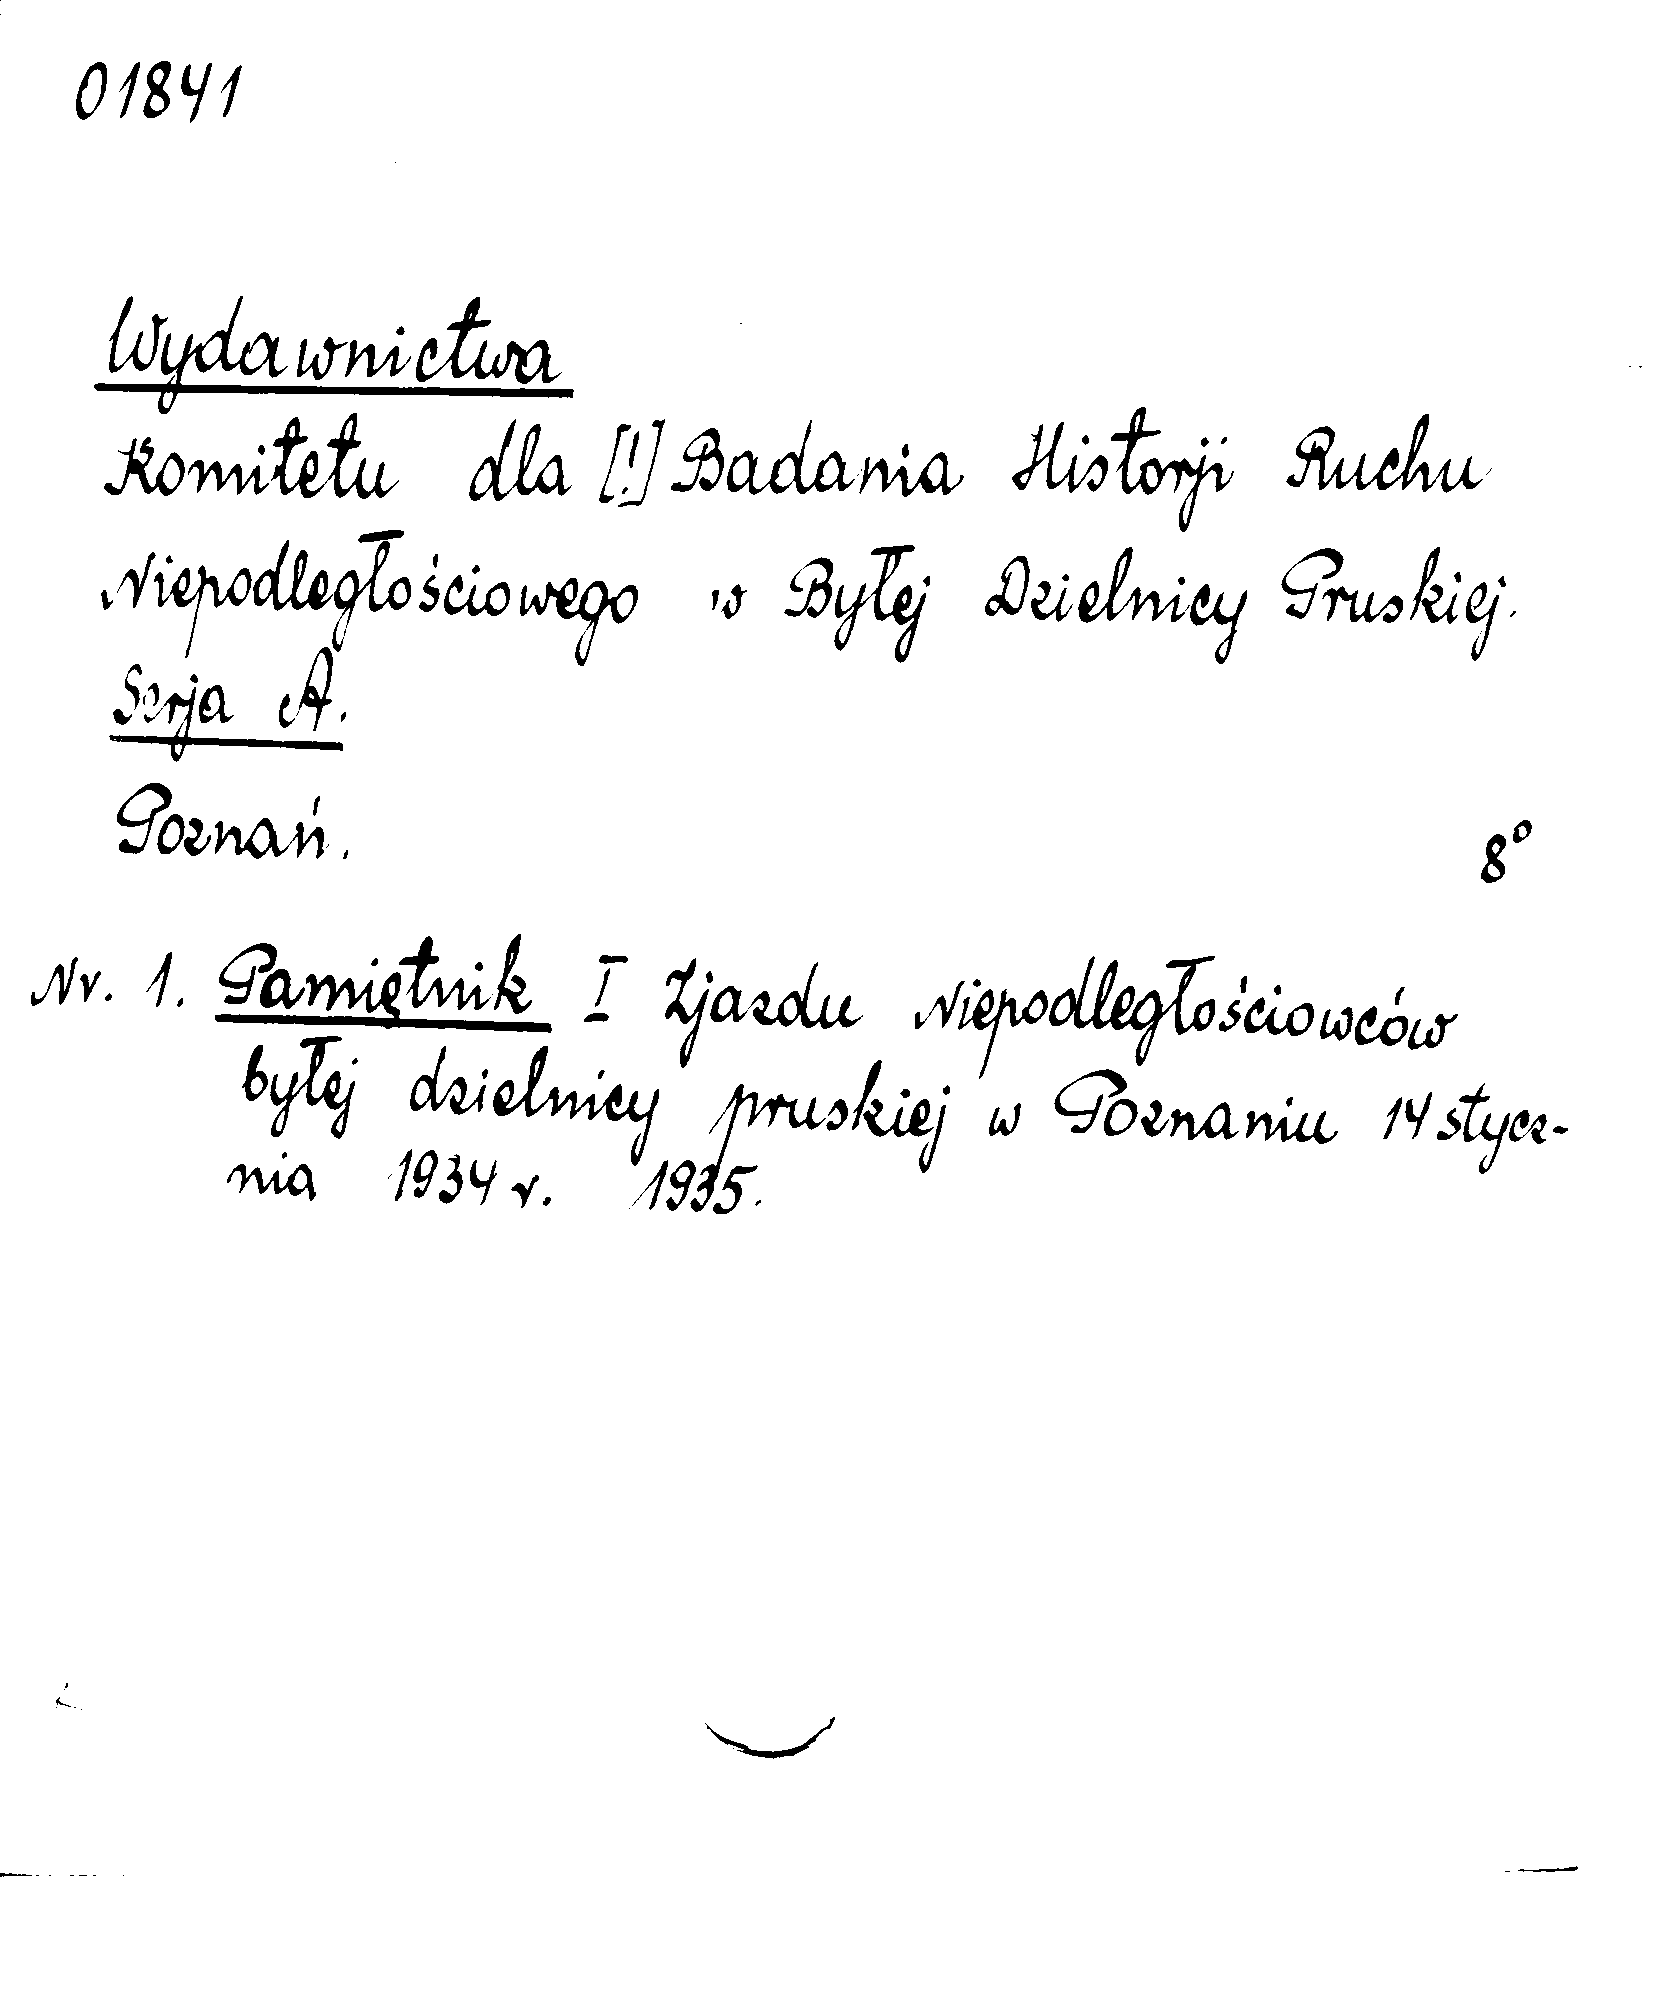 01841
Wydawnictwa
Komitetu dla [!] Badania Historji Ruchu
Niepodległościowego w Byłej Dzielnicy Pruskiej.
Serja A.
Poznań.
8°
Nr. 1. Pamiętnik I Zjazdu Niepodległościowców
byłej dzielnicy pruskiej w Poznaniu 14 stycz-
nia 1934 r. 1935.